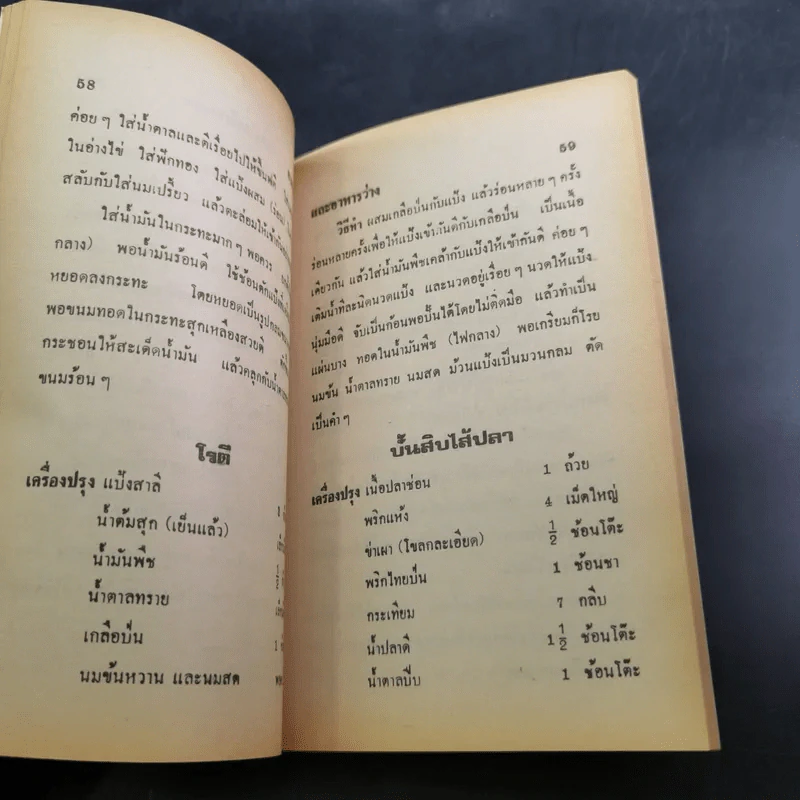 58
ค่อยๆ ใส่น้ำตาลและตีเรื่อยไปให้ขึ้นฟูดี
ในอ่างไข่ ใส่ฟักทอง ใส่แป้งผสม
สลับกับใส่นมเปรี้ยว แล้วตะล่อมให้เข้ากัน
ใส่น้ำมันในกระทะมากๆ พอควร
กลาง) พอน้ำมันร้อนดี ใช้ช้อนตักแป้ง
หยอดลงกระทะ โดยหยอดเป็นรูป
พอขนมทอดในกระทะสุกเหลืองสวยดี
กระชอนให้สะเด็ดน้ำมัน แล้วคลุกกับ
ขนมร้อนๆ
โรตี
เครื่องปรุง แป้งสาลี 1
น้ำต้มสุก (เย็นแล้ว)
น้ำมันพืช
น้ำตาลทราย
เกลือป่น 1
นมข้นหวาน และนมสด
59
และอาหารว่าง
วิธีทำ ผสมเกลือป่นกับแป้ง แล้วร่อนหลายๆ ครั้ง
ร่อนหลายครั้งเพื่อให้แป้งเข้ากันดีกับเกลือป่น เป็นเนื้อ
เดียวกัน แล้วใส่น้ำมันพืชเคล้ากับแป้งให้เข้ากันดี ค่อยๆ
เติมน้ำทีละนิดนวดแป้ง และนวดอยู่เรื่อยๆ นวดให้แป้ง
นุ่มมือดี จับเป็นก้อนพอปั้นได้โดยไม่ติดมือ แล้วทำเป็น
แผ่นบาง ทอดในน้ำมันพืช (ไฟกลาง) พอเกรียมก็โรย
นมข้น น้ำตาลทราย นมสด ม้วนแป้งเป็นมวนกลม ตัด
เป็นคำๆ
ปั้นสิบไส้ปลา
เครื่องปรุง เนื้อปลาช่อน 1 ถ้วย
พริกแห้ง 4 เม็ดใหญ่
ข่าเผา (โขลกละเอียด) ½ ช้อนโต๊ะ
พริกไทยป่น 1 ช้อนชา
กระเทียม 7 กลีบ
น้ำปลาดี 1½ ช้อนโต๊ะ
น้ำตาลปีบ 1 ช้อนโต๊ะ